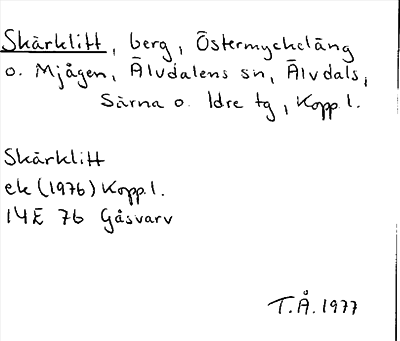 Skärklitt, berg, Östermyckeläng
o. Mjågen, Älvdalens sn, Älvdals,
Särna o. Idre tg, Kopp.l.
Skärklitt
ek (1976) Kopp.l.
14E 7b Gåsvarv
T.Å. 1977